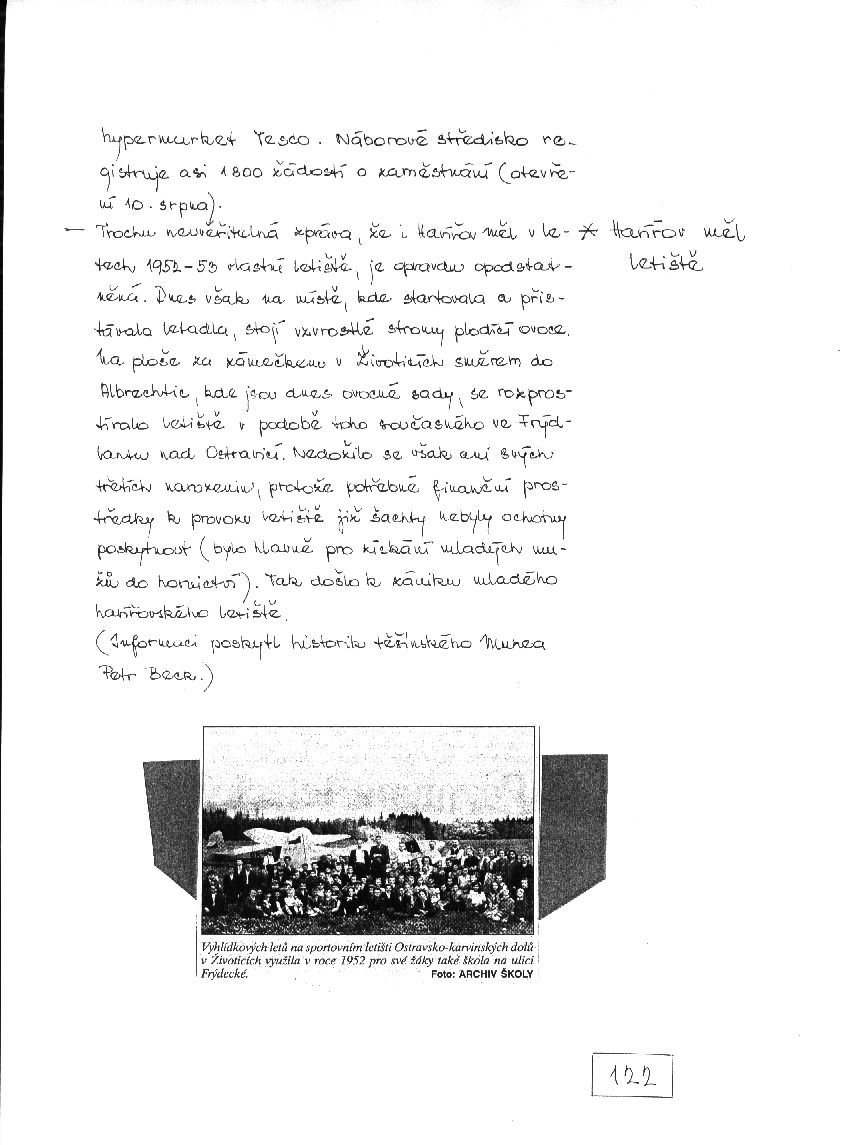 hypermarket Tesco. Náborové středisko re-
gistruje asi 1800 žádostí o zaměstnání (otevře-
ní 10. srpna).
— Trochu neuvěřitelná zpráva, že i Havířov měl v le-
tech 1952-53 vlastní letiště, je opravdu opodstat-
něná. Dnes však na místě, kde startovala a přis-
távala letadla, stojí vzvrostlé stromy plodící ovoce.
Na ploše za zámečkem v Životicích směrem do
Albrechtic, kde jsou dnes ovocné sady, se rozpros-
tíralo letiště v podobě toho současného ve Frýd-
lantu nad Ostravicí. Nedožilo se však ani svých
třetích narozenin, protože potřebné finanční pros-
tředky k provozu letiště již šachty nebyly ochotny
poskytnout (bylo hlavně pro získání mladých mu-
žů do hornictví). Tak došlo k zániku mladého
havířovského letiště.
(Informaci poskytl historik těšínského Muzea
Petr Beck.)
* Havířov měl
letiště
Vyhlídkových letů na sportovním letišti Ostravsko-karvinských dolů
v Životicích využila v roce 1952 pro své žáky také škola na ulici
Frýdecké. Foto: ARCHIV ŠKOLY
122